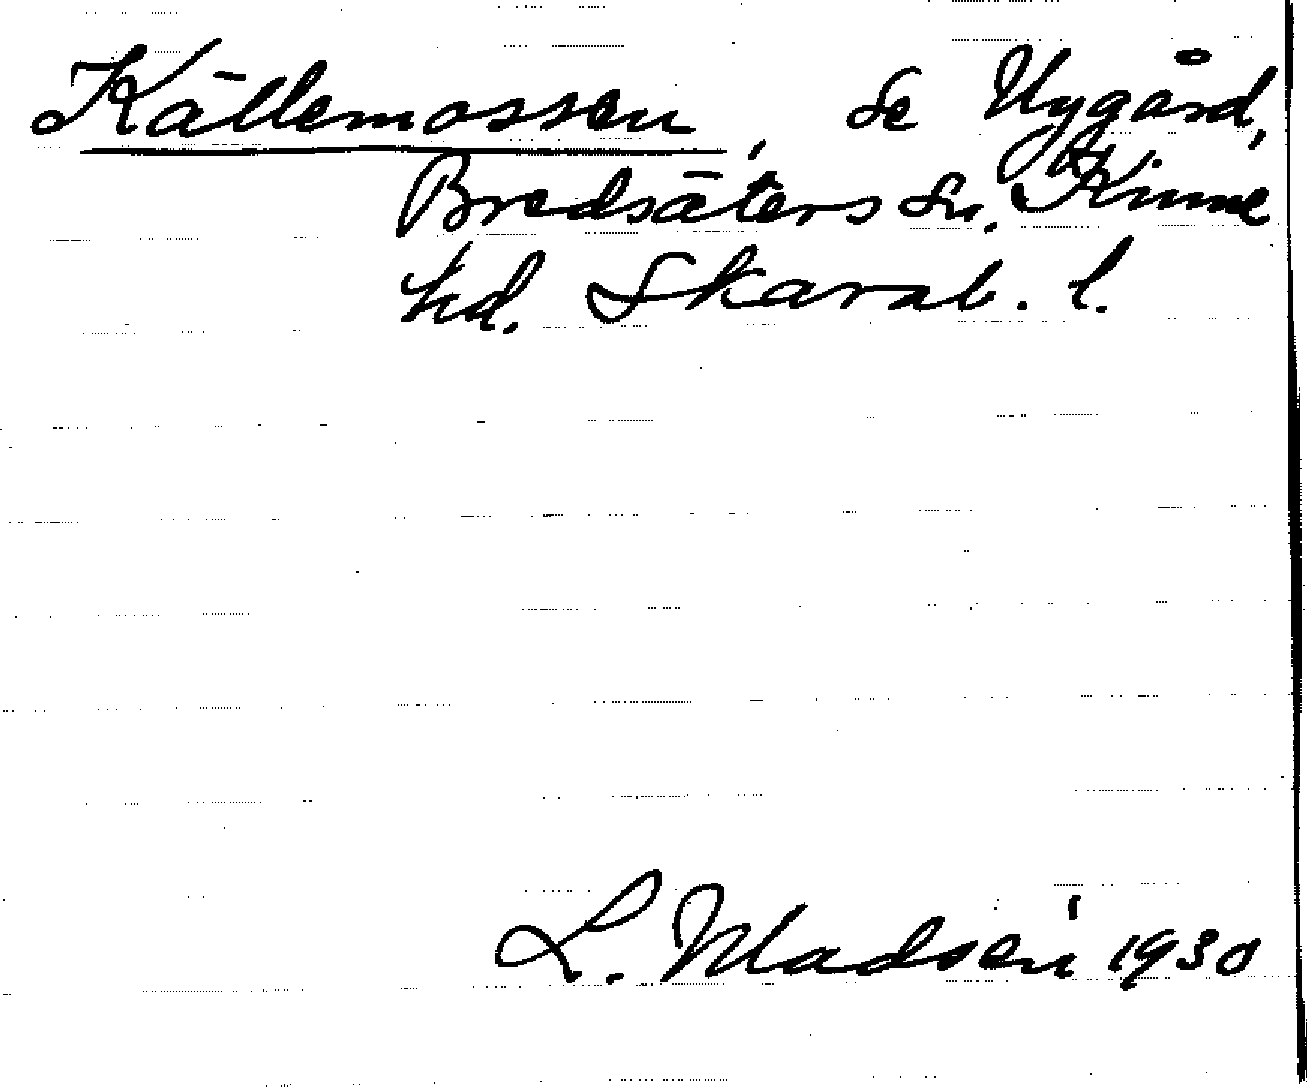 Källemossen, se Nygård,
Bredsäters sn, Kinne
hd. Skarab. l.
L. Madsén 1930